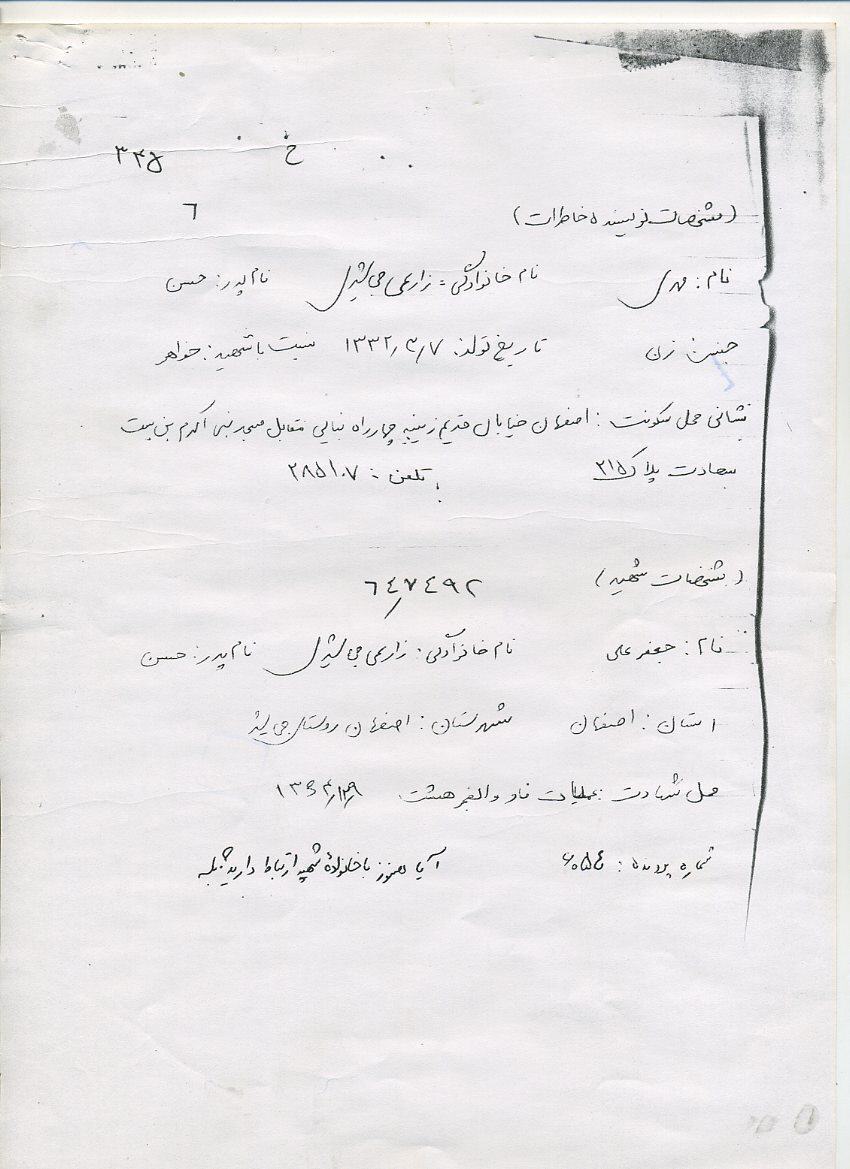 خ ۳۳۵
(مشخصات نویسنده خاطرات) ٦
نام: نام خانوادگی: زارعی جی شیر نام پدر: حسن
جنس زن تاریخ تولد: ۱۳۳۲/۳/۷ نسبت با شهید: خواهر
نشانی محل سکونت: اصفهان خیابان قدیم زینبیه چهارراه مقابل مسجد نبی اکرم بن بست
سعادت پلاک ۲۱۵ تلفن: ۲۸۵۱۰۷
(مشخصات شهید) ٦٤٧٤٩٢
نام: جعفرعلی نام خانوادگی: زارعی جی شیر نام پدر: حسن
استان: اصفهان شهرستان: اصفهان روستای جی شیر
محل شهادت: عملیات فاو والفجر هشت
شماره پرونده: آیا هنوز با خانوادهٔ شهید ارتباط دارید؟ بله